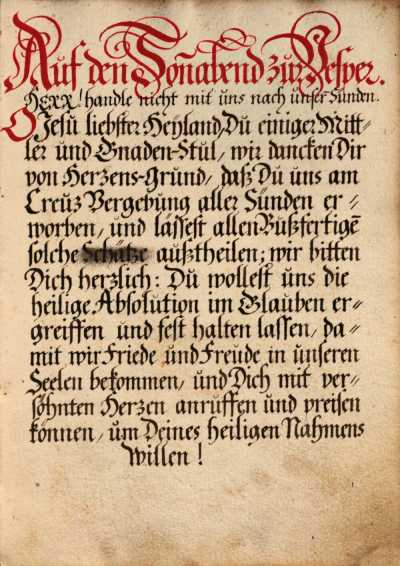 Auf den Son̄abend zur Vesper.
HERR! handle nicht mit uns nach unser Sünden.
O Jesu liebster Heyland, Du einiger Mitt-
ler und Gnaden-Stul, wir dancken Dir
von Herzens-Grund, daß Du uns am
Creuz Vergebung aller Sünden er-
worben, und lässest allen Bußfertigē
solche Schätze außtheilen; wir bitten
Dich herzlich: Du wollest uns die
heilige Absolution im Glauben er-
greiffen und fest halten lassen, da-
mit wir Friede und Freude in unseren
Seelen bekommen, und Dich mit ver-
söhnten Herzen anruffen und preisen
können, um Deines heiligen Nahmens
willen!